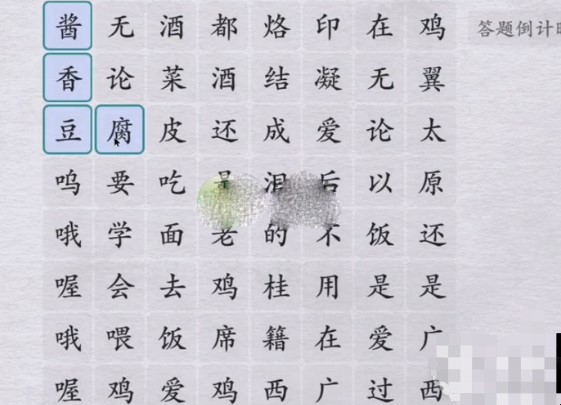 酱无酒都烙印在鸡
答题倒计
香论菜酒结凝无翼
豆腐皮还成爱论太
呜要吃是泪后以原
哦学面老的不饭还
喔会去鸡桂用是是
哦喂饭席籍在爱广
喔鸡爱鸡西广过西